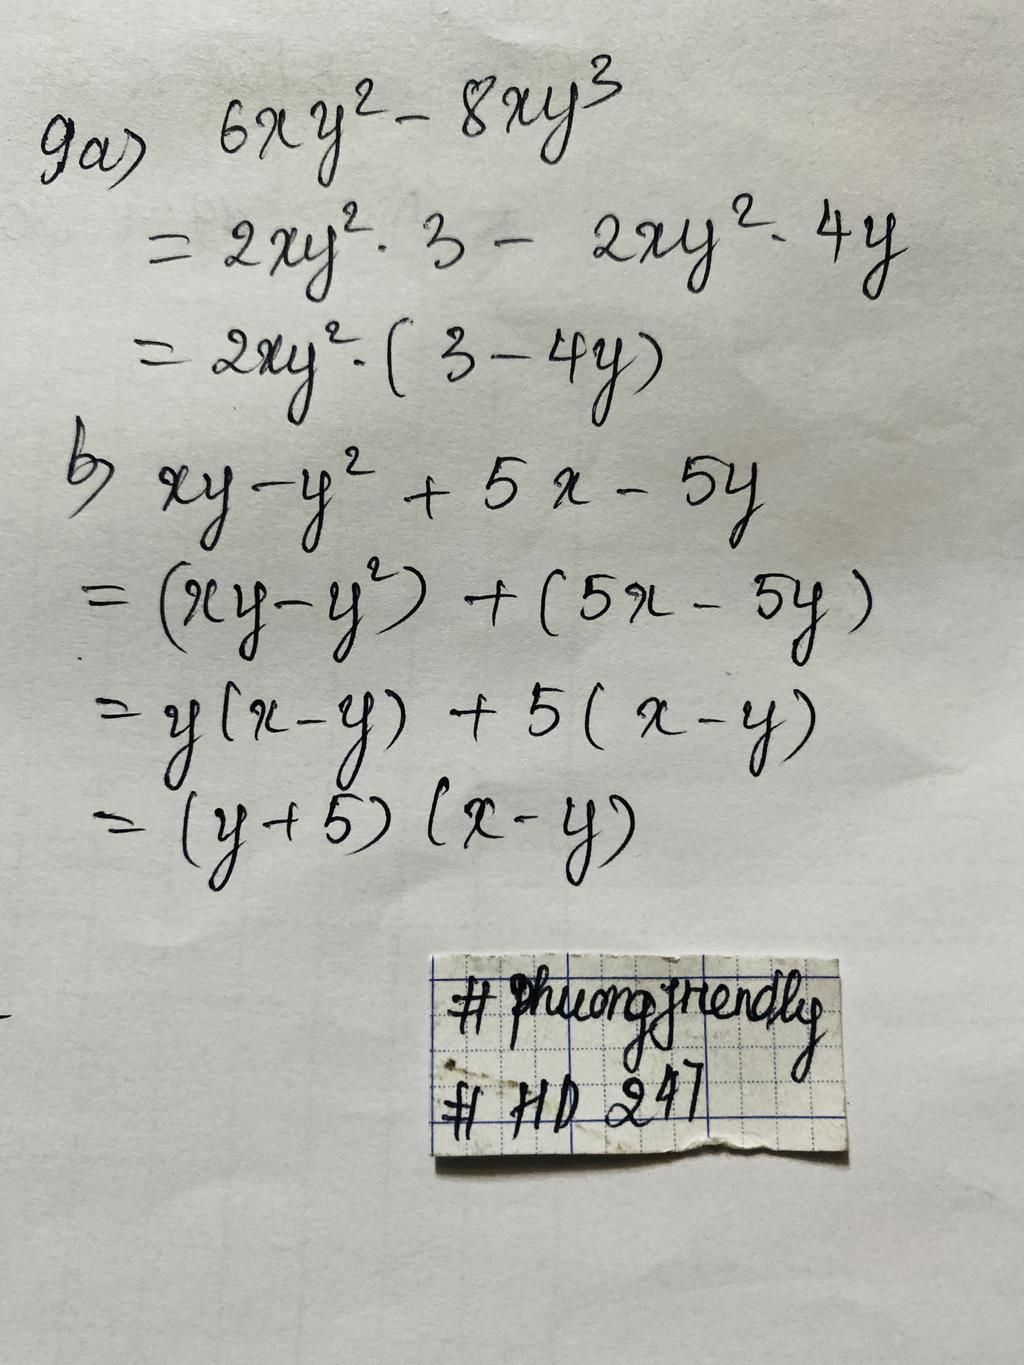 9a) 6xy² - 8xy³
= 2xy² . 3 - 2xy² . 4y
= 2xy² . ( 3 - 4y)
b) xy - y² + 5x - 5y
= (xy - y²) + (5x - 5y)
= y(x - y) + 5( x - y)
= (y + 5) (x - y)
# phuongfriendly
# HD 247